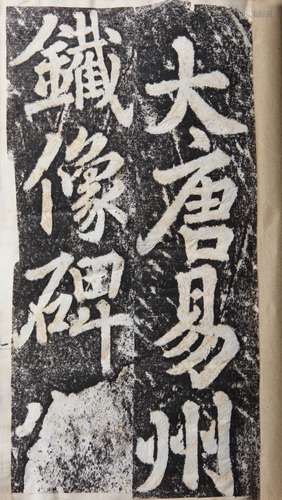 大唐易州
鐵像碑